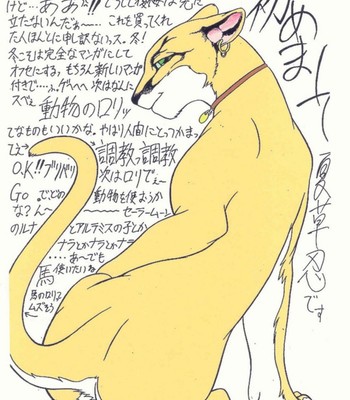 けど…ああぁ!!
立たないんだぁー……これを買ってくれ
た人ほんとに申し訳ないっス。冬!
冬こそは完全なマンガにして
オフセにする。もちろん新しいマンガ
スペぇ
動物のロリッ
てなものもいいかな。やはり人間にとっつかまっ
てぇ
調教っ調教
O.K!!
次はロリでぇー
Go
動物を使おうか
な?ん〜
セーラームーン
のルナとアルテミスの子とか
ナラとかナラとかナラ
…あーでも
馬使いたいな
馬のロリは
ムズそう
初めまして
夏草忍です